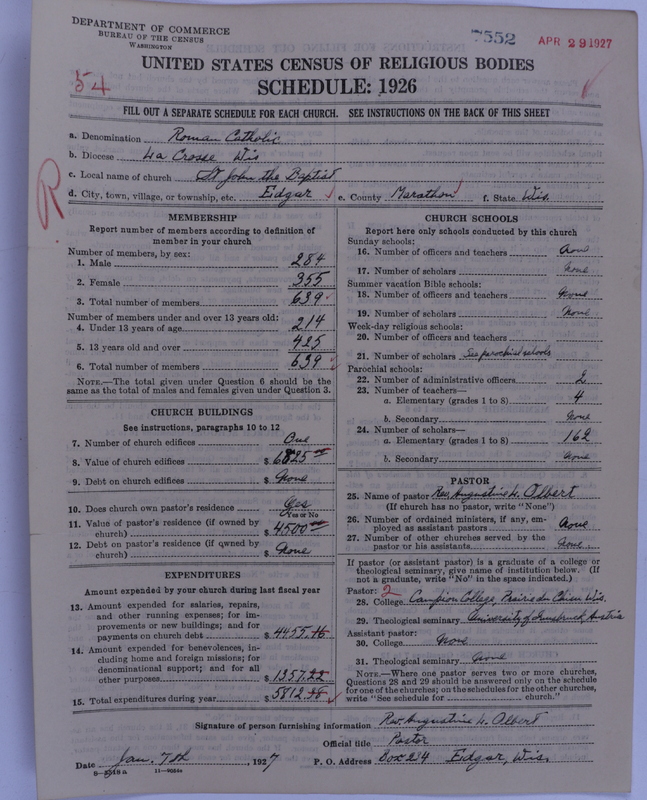 DEPARTMENT OF COMMERCE
BUREAU OF THE CENSUS
WASHINGTON
7552
APR 29 1927
UNITED STATES CENSUS OF RELIGIOUS BODIES
SCHEDULE: 1926
54
FILL OUT A SEPARATE SCHEDULE FOR EACH CHURCH. SEE INSTRUCTIONS ON THE BACK OF THIS SHEET
a. Denomination Roman Catholic
b. Diocese La Crosse Wis
c. Local name of church St John the Baptist
d. City, town, village, or township, etc. Edgar e. County Marathon f. State Wis.
R
MEMBERSHIP
Report number of members according to definition of
member in your church
Number of members, by sex:
1. Male 284
2. Female 355
3. Total number of members 639
Number of members under and over 13 years old:
4. Under 13 years of age 214
5. 13 years old and over 425
6. Total number of members 639
NOTE.—The total given under Question 6 should be
same as the total of males and females given under Question 3.
CHURCH BUILDINGS
See instructions, paragraphs 10 to 12
7. Number of church edifices One
8. Value of church edifices $ 6825 00
9. Debt on church edifices $ None
10. Does church own pastor's residence Yes
Yes or No
11. Value of pastor's residence (if owned by
church) $ 4500 00
12. Debt on pastor's residence (if owned by
church) $ None
EXPENDITURES
Amount expended by your church during last fiscal year
13. Amount expended for salaries, repairs,
and other running expenses; for im-
provements or new buildings; and for
payments on church debt $ 4455.16
14. Amount expended for benevolences, in-
cluding home and foreign missions; for
denominational support; and for all
other purposes $ 1357.22
15. Total expenditures during year $ 5812.38
CHURCH SCHOOLS
Report here only schools conducted by this church
Sunday schools:
16. Number of officers and teachers None
17. Number of scholars None
Summer vacation Bible schools:
18. Number of officers and teachers None
19. Number of scholars None
Week-day religious schools:
20. Number of officers and teachers
21. Number of scholars See parochial schools
Parochial schools:
22. Number of administrative officers 2
23. Number of teachers—
a. Elementary (grades 1 to 8) 4
b. Secondary None
24. Number of scholars—
a. Elementary (grades 1 to 8) 162
b. Secondary None
PASTOR
25. Name of pastor Rev. Augustine W. Olbert
(If church has no pastor, write "None")
26. Number of ordained ministers, if any, em-
ployed as assistant pastors None
27. Number of other churches served by the
pastor or his assistants None
If pastor (or assistant pastor) is a graduate of a college or
theological seminary, give name of institution below. (If
not a graduate, write "No" in the space indicated.)
Pastor: 2
28. College Campion College, Prairie du Chien Wis.
29. Theological seminary University of Innsbruck, Austria
Assistant pastor:
30. College None
31. Theological seminary None
NOTE.—Where one pastor serves two or more churches,
Questions 28 and 29 should be answered only on the schedule
for one of the churches; on the schedules for the other churches,
write "See schedule for church."
Signature of person furnishing information Rev. Augustine W. Olbert
Official title Pastor
Date Jan. 7th, 1927 P. O. Address Box 24 Edgar, Wis.